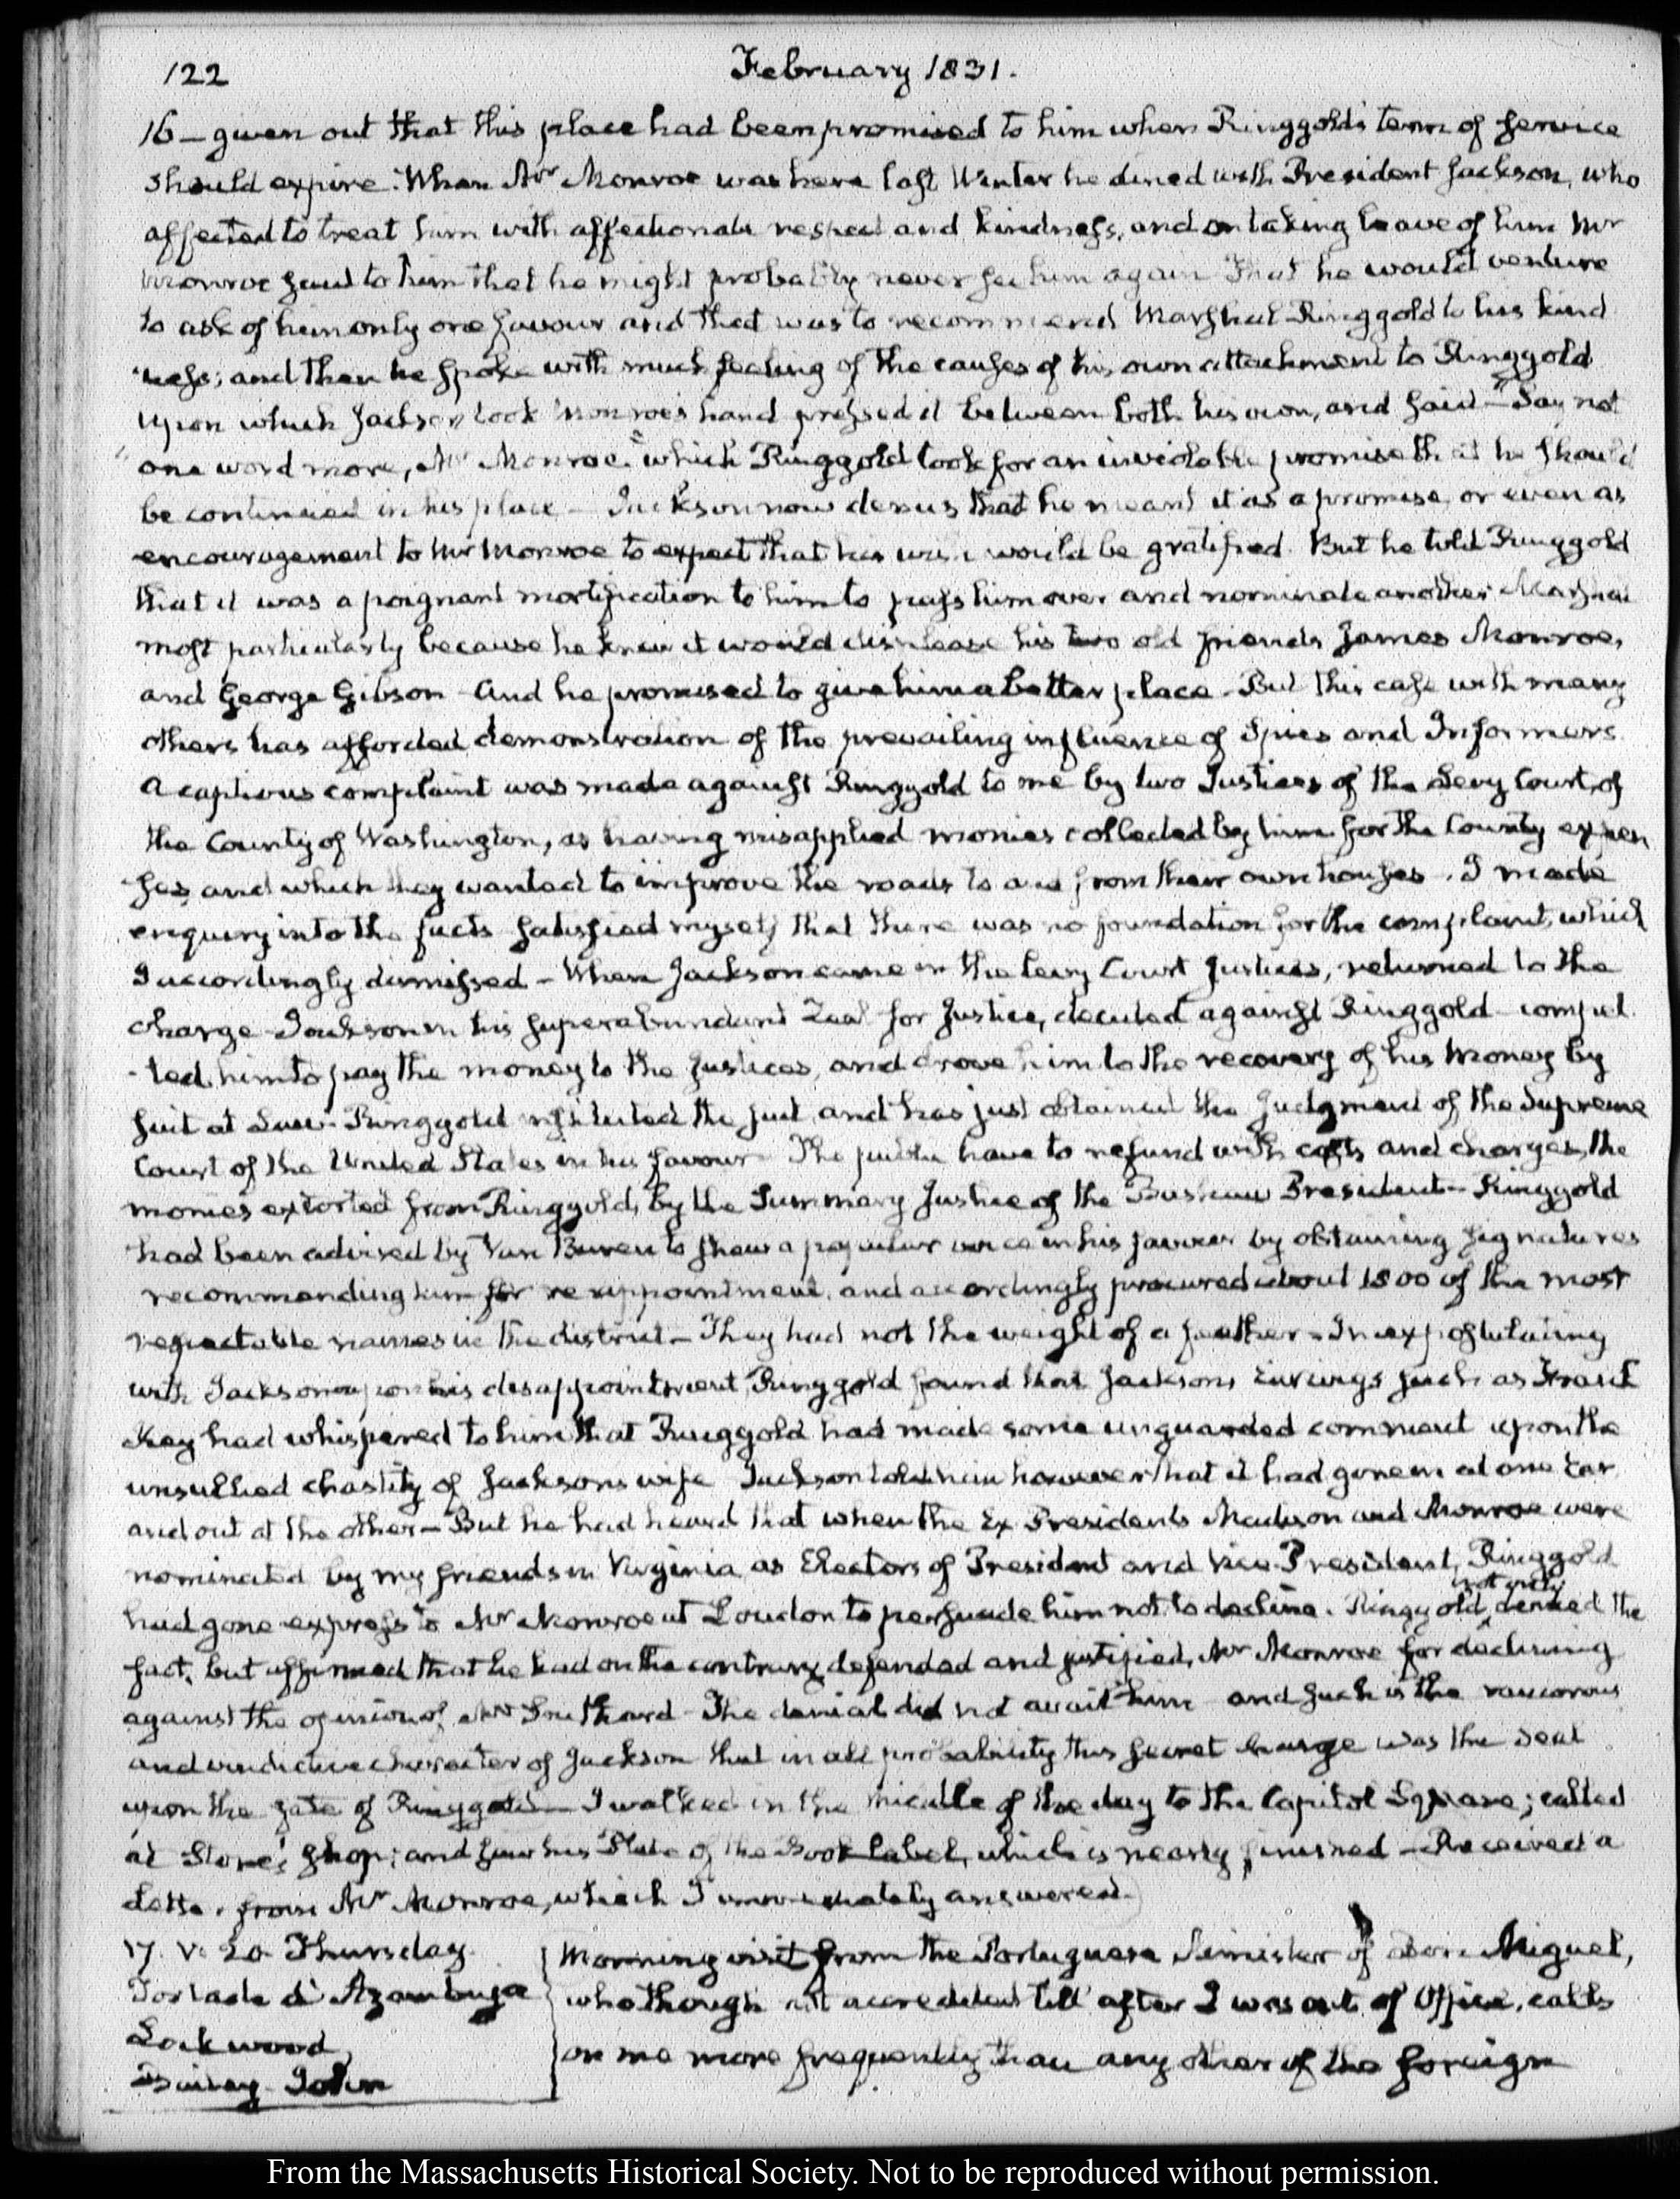 122
February 1831.
16 — given out that this place had been promised to him when Ringgold's term of service
should expire. When Mr Monroe was here last Winter he dined with President Jackson, who
affected to treat him with affectionate respect and kindness, and on taking leave of him Mr
Monroe said to him that he might probably never see him again That he would venture
to ask of him only one favour and that was to recommend Marshal Ringgold to his kind
-ness; and then he spoke with much feeling of the causes of his own attachment to Ringgold
upon which Jackson took Monroe's hand pressed it between both his own, and said — "Say not
"one word more, Mr Monroe." which Ringgold took for an inviolable promise that he should
be continued in his place — Jackson now denies that he meant it as a promise, or even as
encouragement to Mr Monroe to expect that his wish would be gratified. But he told Ringgold
that it was a poignant mortification to him to pass him over and nominate another Marshal
most particularly because he knew it would displease his two old friends James Monroe,
and George Gibson — And he promised to give him a better place — But this case with many
others has afforded demonstration of the prevailing influence of Spies and Informers.
A captious complaint was made against Ringgold to me by two Justices of the Levy Court, of
the County of Washington, as having misapplied monies collected by him for the County expen
ses and which they wanted to improve the roads to and from their own houses. I made
enquiry into the facts satisfied myself that there was no foundation for the complaint, which
I accordingly dismissed — When Jackson came in the Levy Court Justices, returned to the
charge Jackson in his superabundant Zeal for Justice, decided against Ringgold — compel
-led him to pay the money to the Justices, and drove him to the recovery of his Money by
suit at Law — Ringgold instituted the suit and has just obtained the Judgment of the Supreme
Court of the United States in his favour — The public have to refund with costs and charges, the
monies extorted from Ringgold, by the Summary Justice of the President — Ringgold
had been advised by Van Buren to show a popular voice in his favour by obtaining signatures
recommending him for reappointment, and accordingly procured about 1800 of the most
respectable names in the district — They had not the weight of a feather — In expostulating
with Jackson upon his disappointment, Ringgold found that Jackson's Earwigs such as Frank
Key had whispered to him that Ringgold had made some unguarded comment upon the
unsullied chastity of Jackson's wife Jackson told him however that it had gone in at one Ear
and out at the other — But he had heard that when the Ex Presidents Madison and Monroe were
nominated by my friends in Virginia as Electors of President and Vice-President, Ringgold
had gone express to Mr Monroe at Loudon to persuade him not to decline. Ringgold not only denied the
fact, but affirmed that he had on the contrary defended and justified, Mr Monroe for declining
against the opinion of Mr Southard — The denial did not avail him and such is the rancorous
and vindictive character of Jackson that in all probability this secret charge was the seal
upon the fate of Ringgold — I walked in the middle of the day to the Capitol Square; called
at Stone's shop; and saw his Plate of the Book label, which is nearly finished — Received a
Letter from Mr Monroe, which I immediately answered.
17. V. 20. Thursday.
Torlade d'Azambuja
Lockwood,
Bailey John
Morning visit from the Portuguese Minister of Don Miguel,
who though not accredited till after I was out of Office, calls
on me more frequently than any other of the foreign
From the Massachusetts Historical Society. Not to be reproduced without permission.